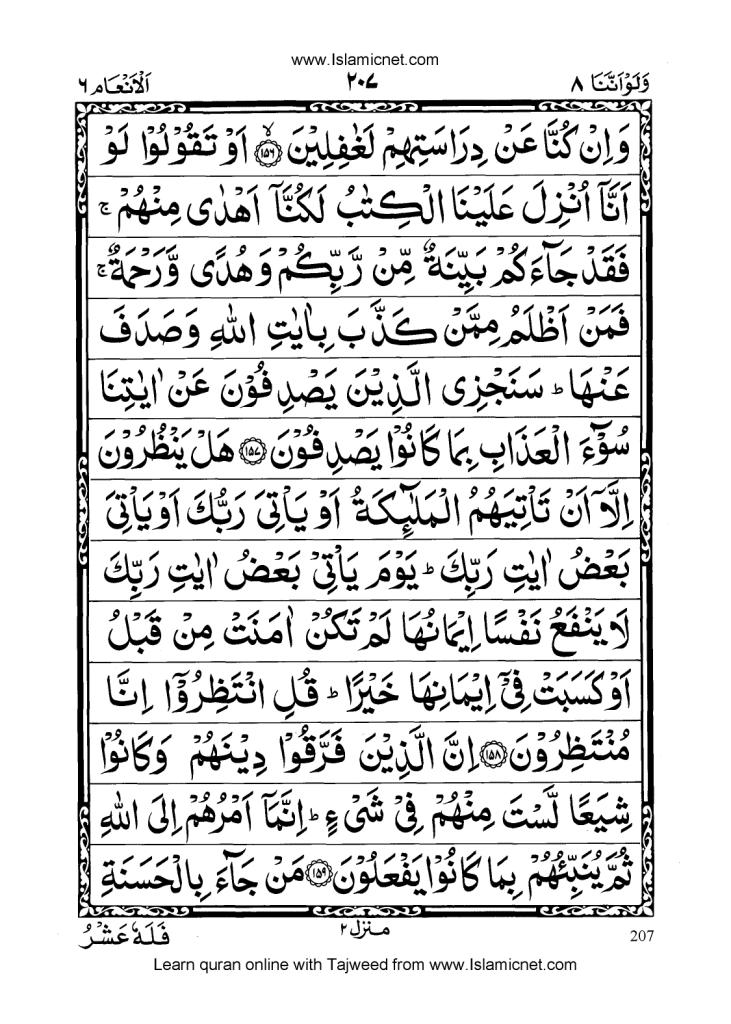 www.Islamicnet.com
وَلَوْاَنَّنَا ٨ ٢٠٧ اَلْاَنْعَام ٦
وَاِنْ كُنَّا عَنْ دِرَاسَتِهِمْ لَغٰفِلِيْنَ ﴿١٥٦﴾ اَوْ تَقُوْلُوْا لَوْ
اَنَّاۤ اُنْزِلَ عَلَيْنَا الْكِتٰبُ لَكُنَّاۤ اَهْدٰى مِنْهُمْ ۚ
فَقَدْ جَآءَكُمْ بَيِّنَةٌ مِّنْ رَّبِّكُمْ وَهُدًى وَّرَحْمَةٌ ۚ
فَمَنْ اَظْلَمُ مِمَّنْ كَذَّبَ بِاٰيٰتِ اللّٰهِ وَصَدَفَ
عَنْهَا ؕ سَنَجْزِى الَّذِيْنَ يَصْدِفُوْنَ عَنْ اٰيٰتِنَا
سُوْٓءَ الْعَذَابِ بِمَا كَانُوْا يَصْدِفُوْنَ ﴿١٥٧﴾ هَلْ يَنْظُرُوْنَ
اِلَّاۤ اَنْ تَاْتِيَهُمُ الْمَلٰٓئِكَةُ اَوْ يَاْتِىَ رَبُّكَ اَوْ يَاْتِىَ
بَعْضُ اٰيٰتِ رَبِّكَ ؕ يَوْمَ يَاْتِىْ بَعْضُ اٰيٰتِ رَبِّكَ
لَا يَنْفَعُ نَفْسًا اِيْمَانُهَا لَمْ تَكُنْ اٰمَنَتْ مِنْ قَبْلُ
اَوْ كَسَبَتْ فِىْۤ اِيْمَانِهَا خَيْرًا ؕ قُلِ انْتَظِرُوْۤا اِنَّا
مُنْتَظِرُوْنَ ﴿١٥٨﴾ اِنَّ الَّذِيْنَ فَرَّقُوْا دِيْنَهُمْ وَكَانُوْا
شِيَعًا لَّسْتَ مِنْهُمْ فِىْ شَىْءٍ ؕ اِنَّمَاۤ اَمْرُهُمْ اِلَى اللّٰهِ
ثُمَّ يُنَبِّئُهُمْ بِمَا كَانُوْا يَفْعَلُوْنَ ﴿١٥٩﴾ مَنْ جَآءَ بِالْحَسَنَةِ
فَلَهٗ عَشْرُ منزل ٢ 207
Learn quran online with Tajweed from www.Islamicnet.com